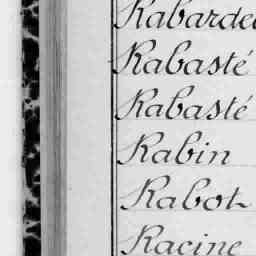 Rabasté
Rabasté
Rabin
Rabot
Racine